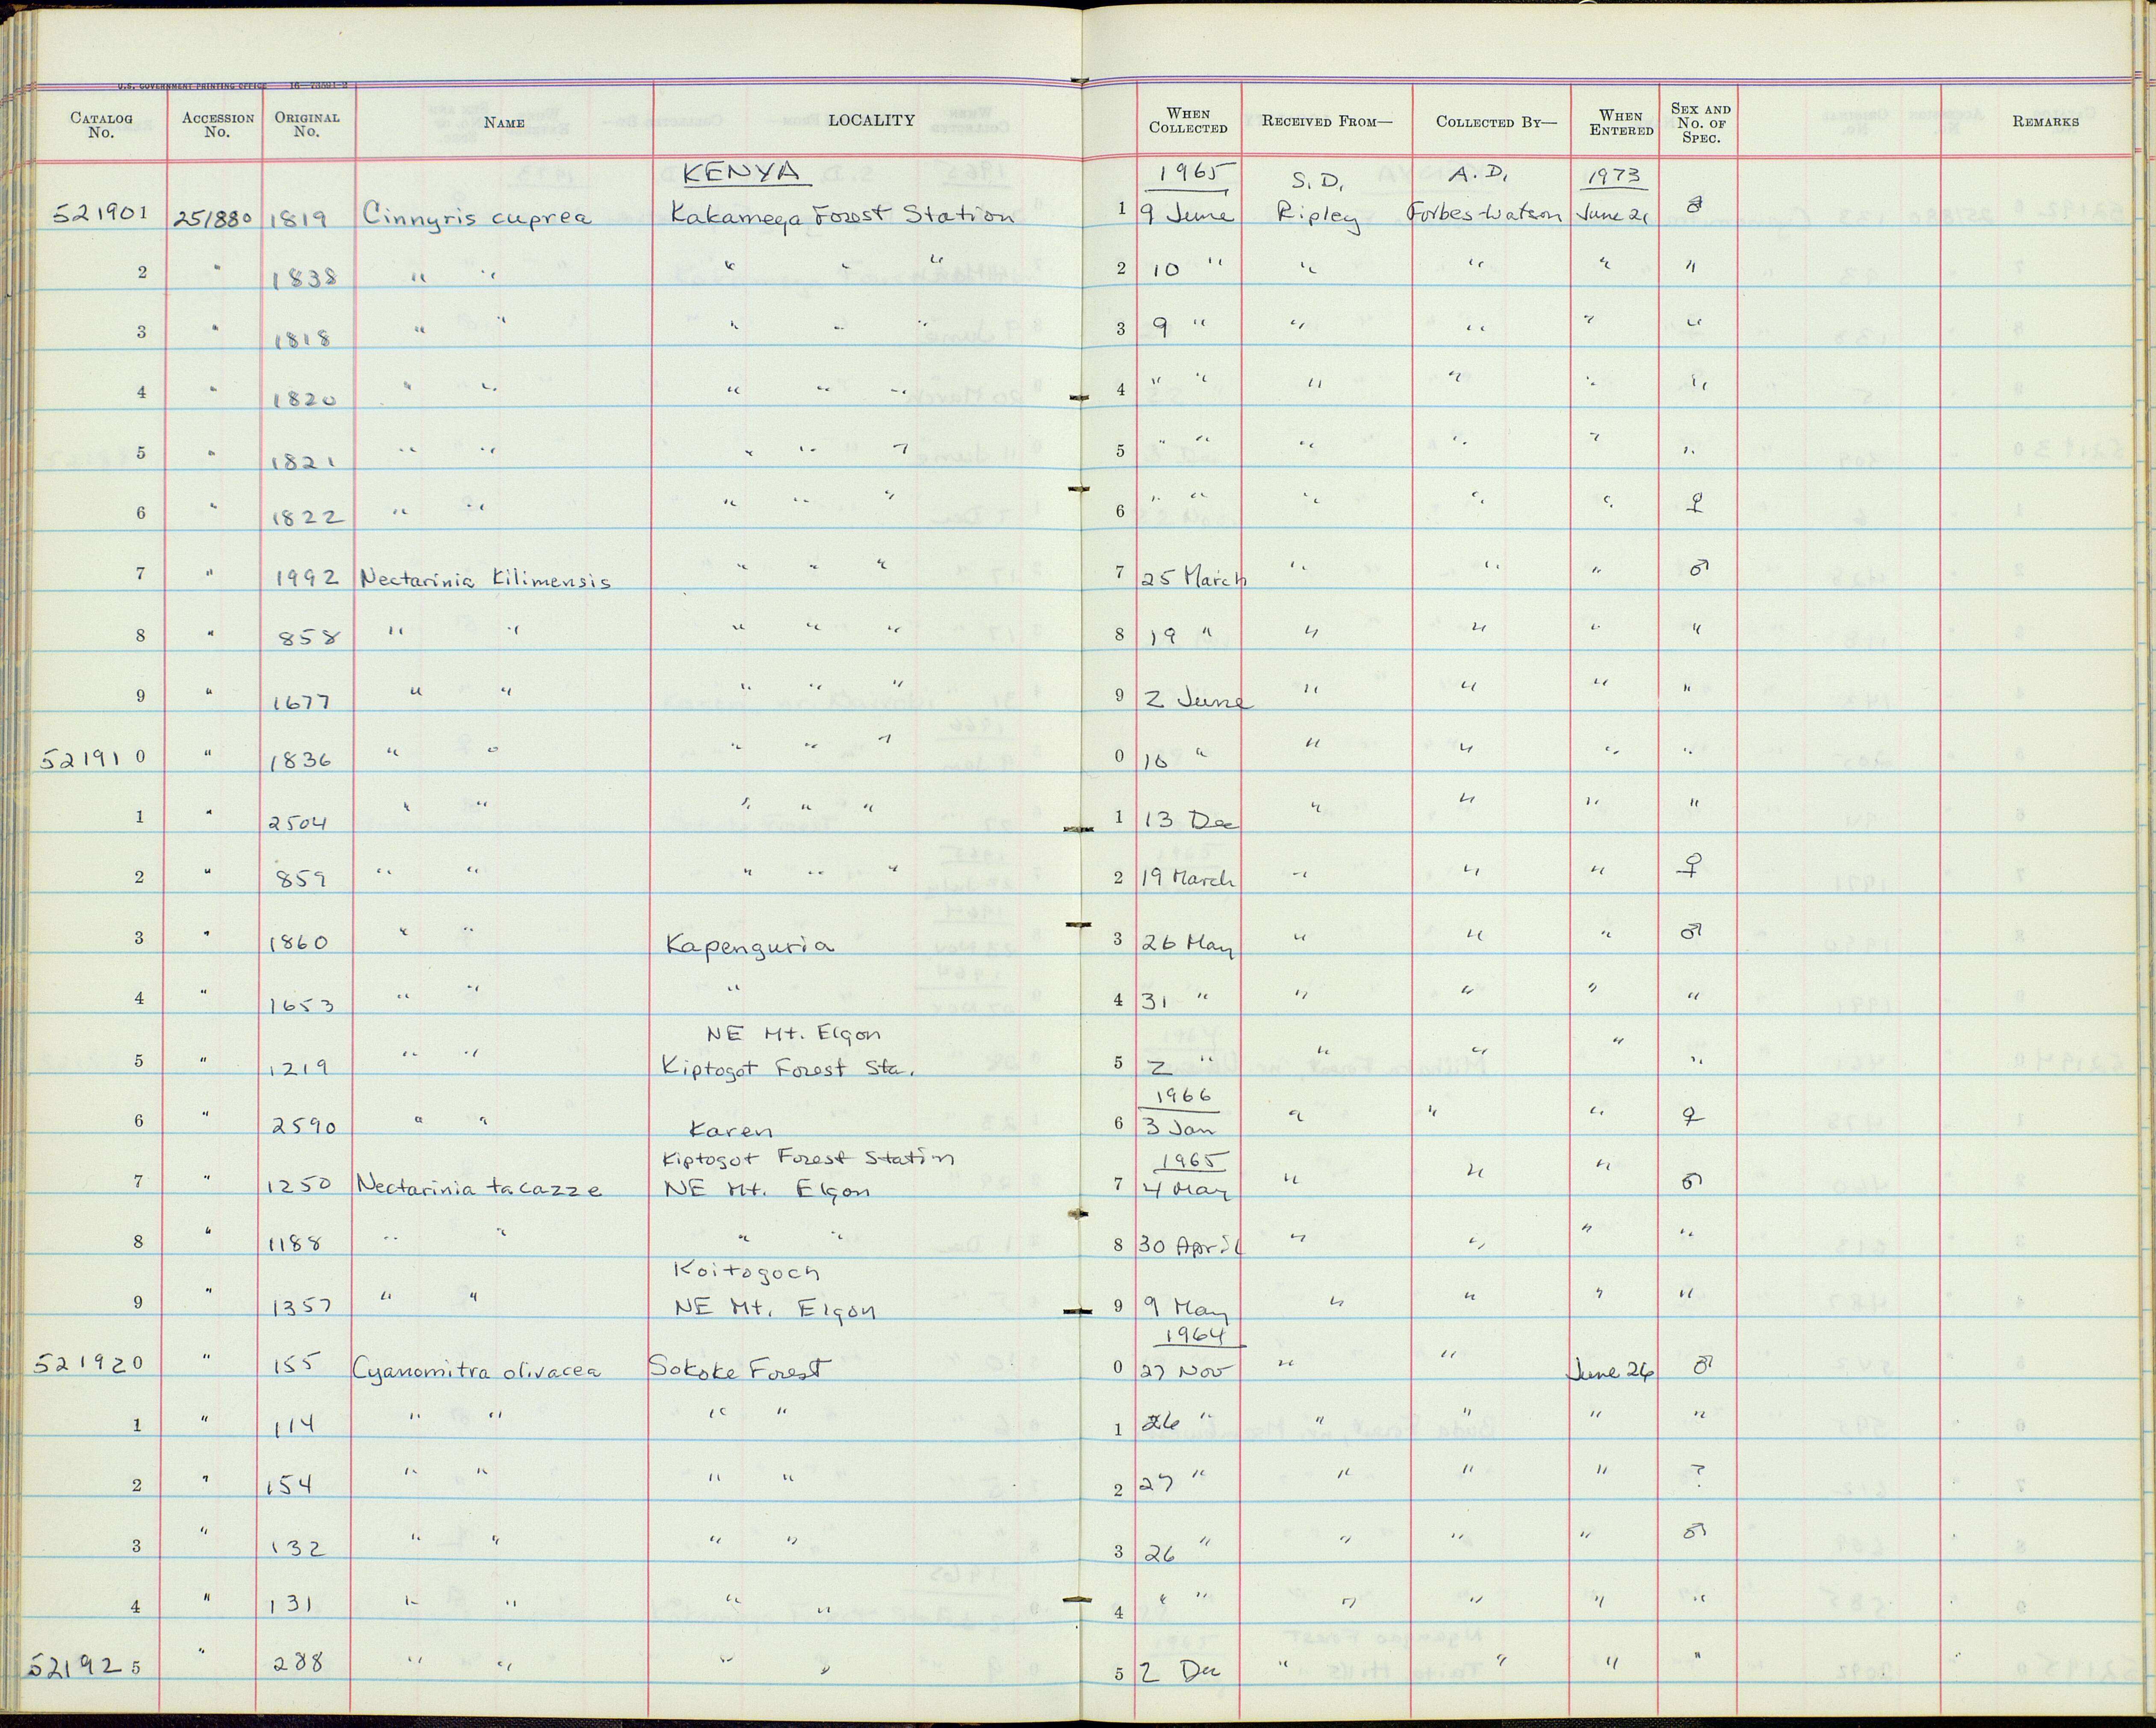 U.S. GOVERNMENT PRINTING OFFICE
CATALOG No. ACCESSION No. ORIGINAL No. NAME LOCALITY WHEN COLLECTED RECEIVED FROM— COLLECTED BY— WHEN ENTERED SEX AND No. OF SPEC. REMARKS
KENYA 1965 S.D. A.D. 1973
521901 251880 1819 Cinnyris cuprea Kakamega Forest Station 1 9 June Ripley Forbes-Watson June 21 ♂
2 " 1838 " " " " " 2 10 " " " " "
3 " 1818 " " " " " 3 9 " " " " "
4 " 1820 " " " " " 4 " " " " " "
5 " 1821 " " " " " 5 " " " " " "
6 " 1822 " " " " " 6 " " " " " ♀
7 " 1992 Nectarinia kilimensis " " " 7 25 March " " " ♂
8 " 858 " " " " " 8 19 " " " " "
9 " 1677 " " " " " 9 2 June " " " "
521910 " 1836 " " " " " 0 10 " " " " "
1 " 2504 " " " " " 1 13 Dec " " " "
2 " 859 " " " " " 2 19 March " " " ♀
3 " 1860 " " Kapenguria 3 26 May " " " ♂
4 " 1653 " " " 4 31 " " " " "
NE Mt. Elgon
5 " 1219 " " Kiptogot Forest Sta. 5 2 " " " " "
1966
6 " 2590 " " Karen 6 3 Jan " " " ♀
Kiptogot Forest Station 1965
7 " 1250 Nectarinia tacazze NE Mt. Elgon 7 4 May " " " ♂
8 " 1188 " " " " 8 30 April " " " "
Koitogoch
9 " 1357 " " NE Mt. Elgon 9 9 May " " " "
1964
521920 " 155 Cyanomitra olivacea Sokoke Forest 0 27 Nov " " June 26 ♂
1 " 114 " " " " 1 26 " " " " "
2 " 154 " " " " 2 27 " " " " ?
3 " 132 " " " " 3 26 " " " " ♂
4 " 131 " " " " 4 " " " " " "
521925 " 288 " " " " 5 2 Dec " " " "